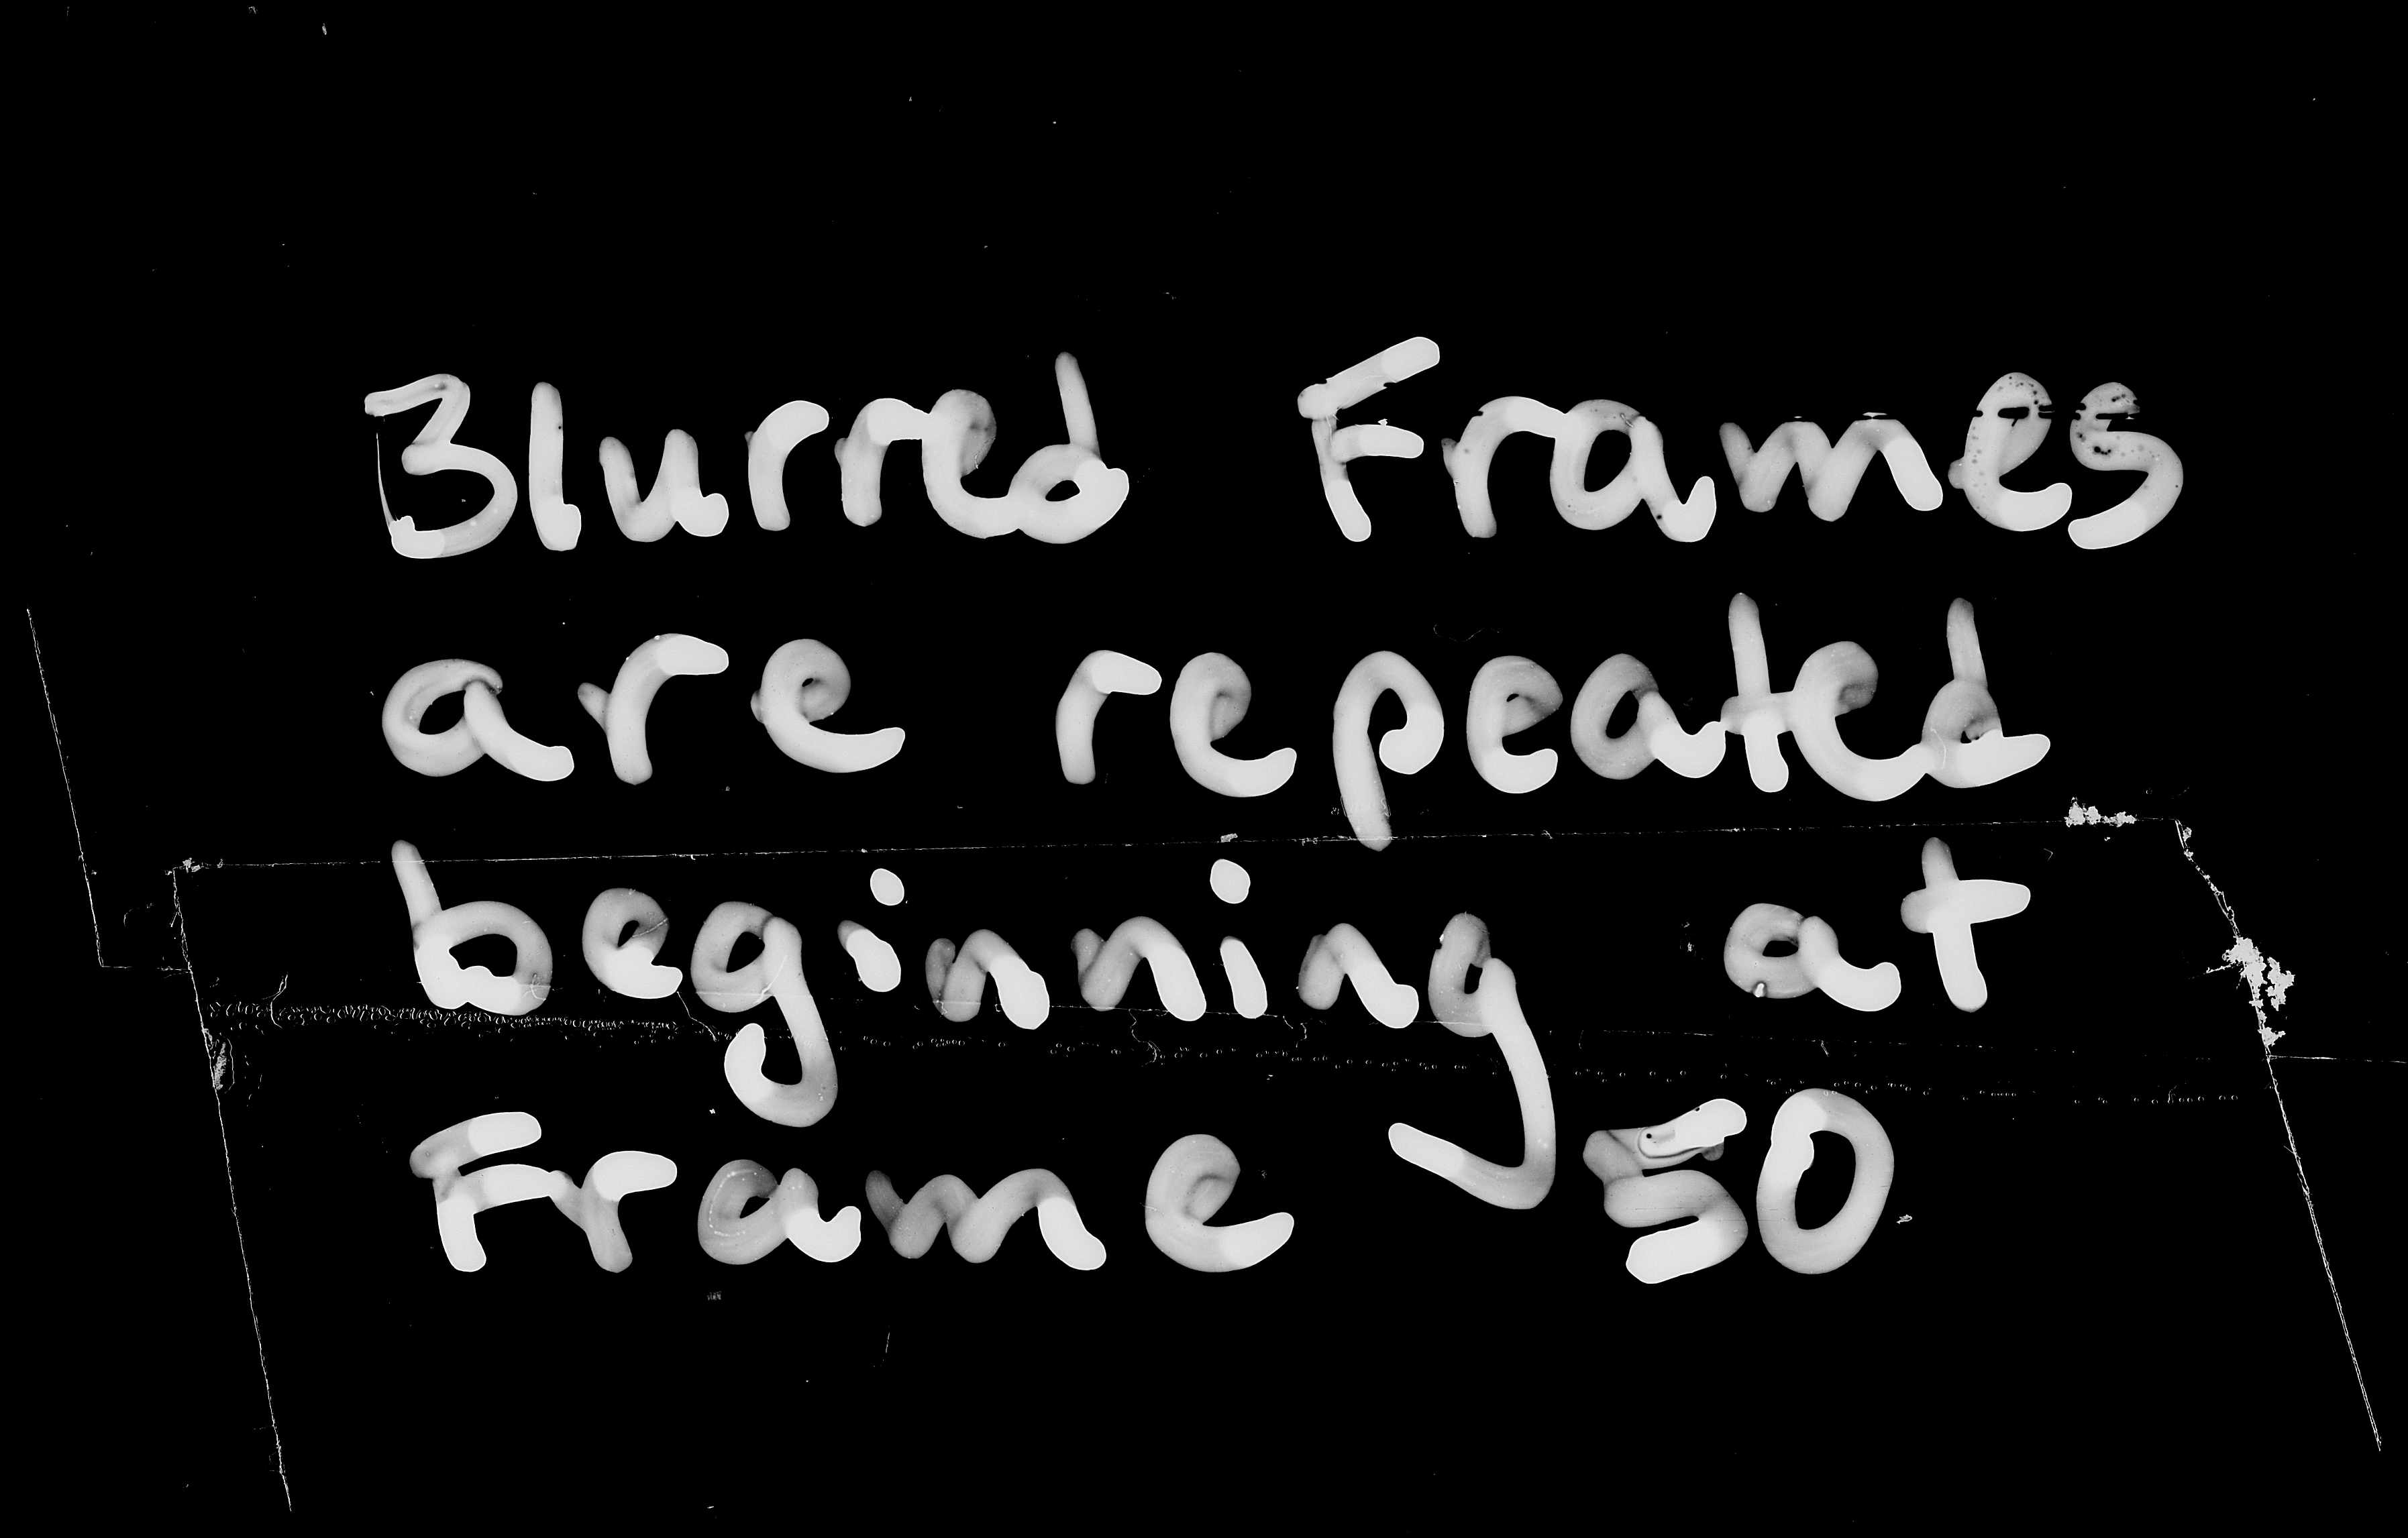 Blurred Frames
are repeated
beginning at
Frame 50